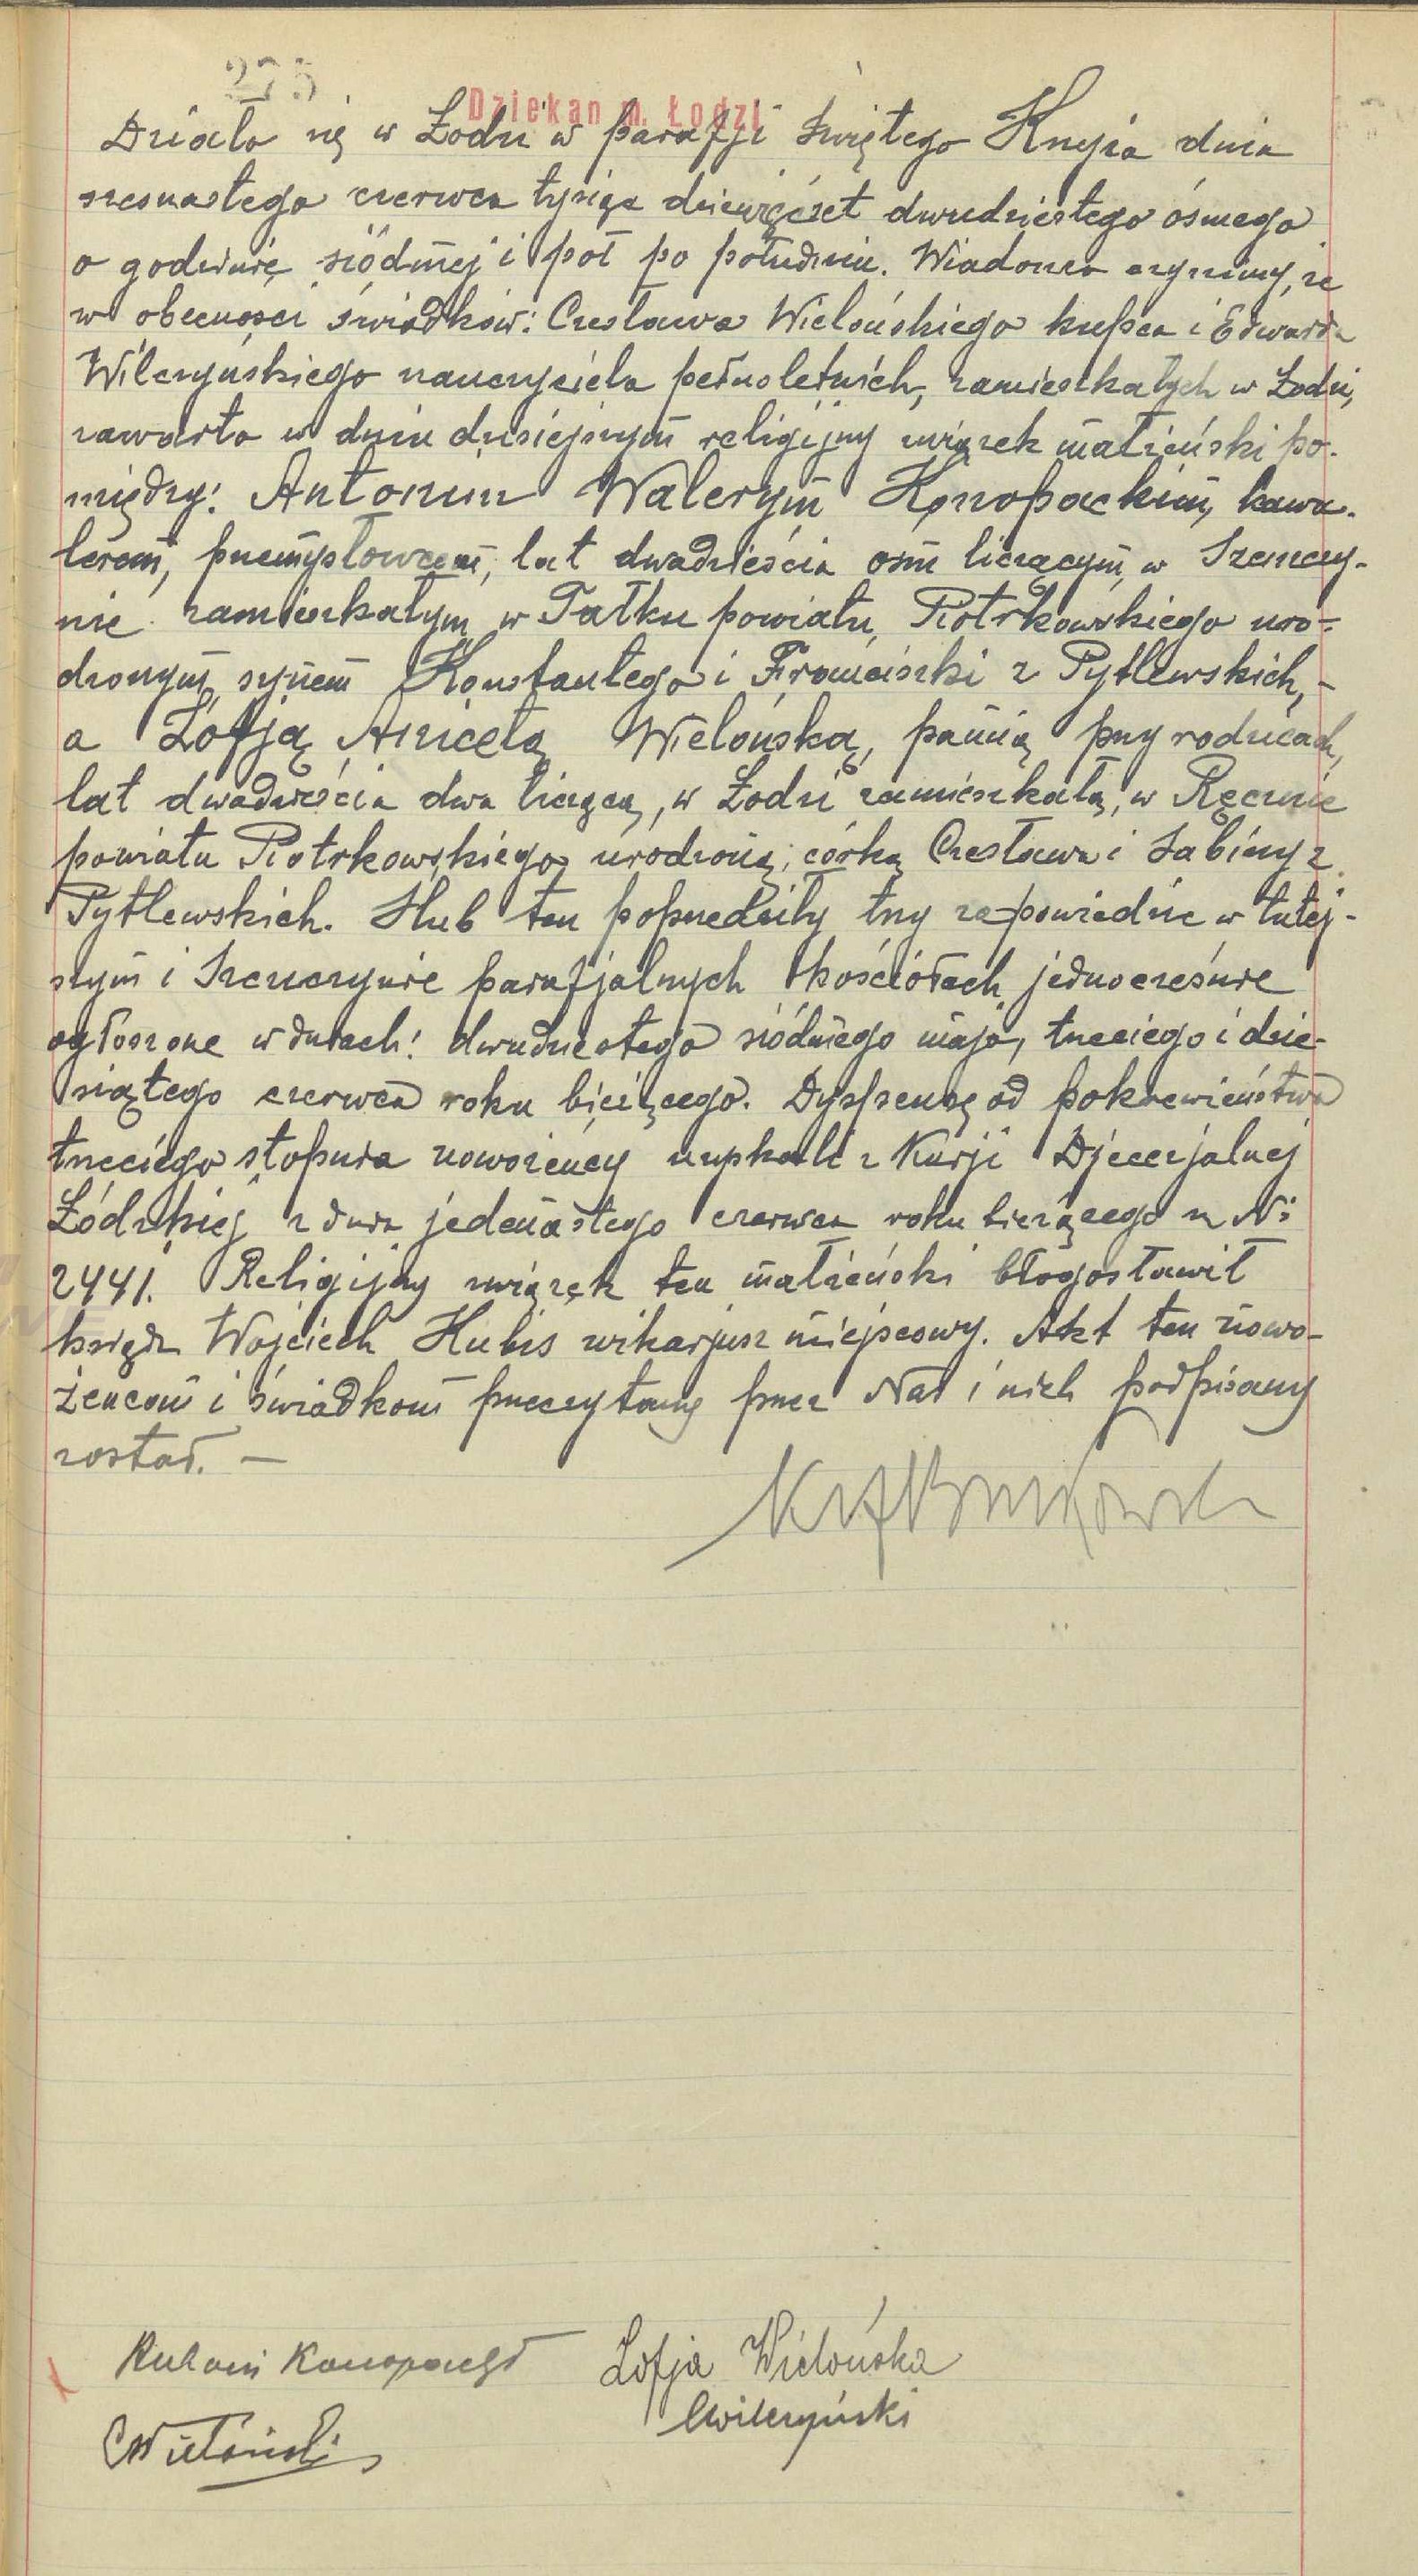 275
Dziekan m. Łodzi
Działo się w Łodzi w parafji świętego Krzyża dnia
szesnastego czerwca tysiąc dziewięćset dwudziestego ósmego
o godzinie siódmej i pół po południu. Wiadomo czynimy, że
w obecności świadków: Czesława Wielońskiego kupca i Edwarda
Wilczyńskiego nauczyciela pełnoletnich, zamieszkałych w Łodzi,
zawarto w dniu dzisiejszym religijny związek małżeński po-
między: Antonim Walerym Konopackim, kawa-
lerem, przemysłowcem, lat dwadzieścia ośm liczącym, w
nie zamieszkałym, w Tałku powiatu Piotrkowskiego uro-
dzonym, synem Konstantego i Franciszki z Pytlewskich, –
a Zofją Anicetą Wielońską, panną przy rodzicach,
lat dwadzieścia dwa liczącą, w Łodzi zamieszkałą, w Ręcznie
powiatu Piotrkowskiego urodzoną, córką Czesława i Sabiny z
Pytlewskich. Ślub ten poprzedziły trzy zapowiedzie w tutej-
szym i parafjalnych kościołach jednocześnie
ogłoszone w dniach: dwudziestego siódmego maja, trzeciego i dzie-
siątego czerwca roku bieżącego. Dyspensę od pokrewieństwa
trzeciego stopnia nowożeńcy uzyskali z Kurji Djecezjalnej
Łódzkiej z dnia jedenastego czerwca roku bieżącego za №
2441. Religijny związek ten małżeński błogosławił
ksiądz Wojciech Hubis wikarjusz miejscowy. Akt ten nowo-
żeńcom i świadkom przeczytany przez Nas i nich podpisany
został. –
Antoni Konopacki Zofja Wielońska
EWilczyński
CWieloński